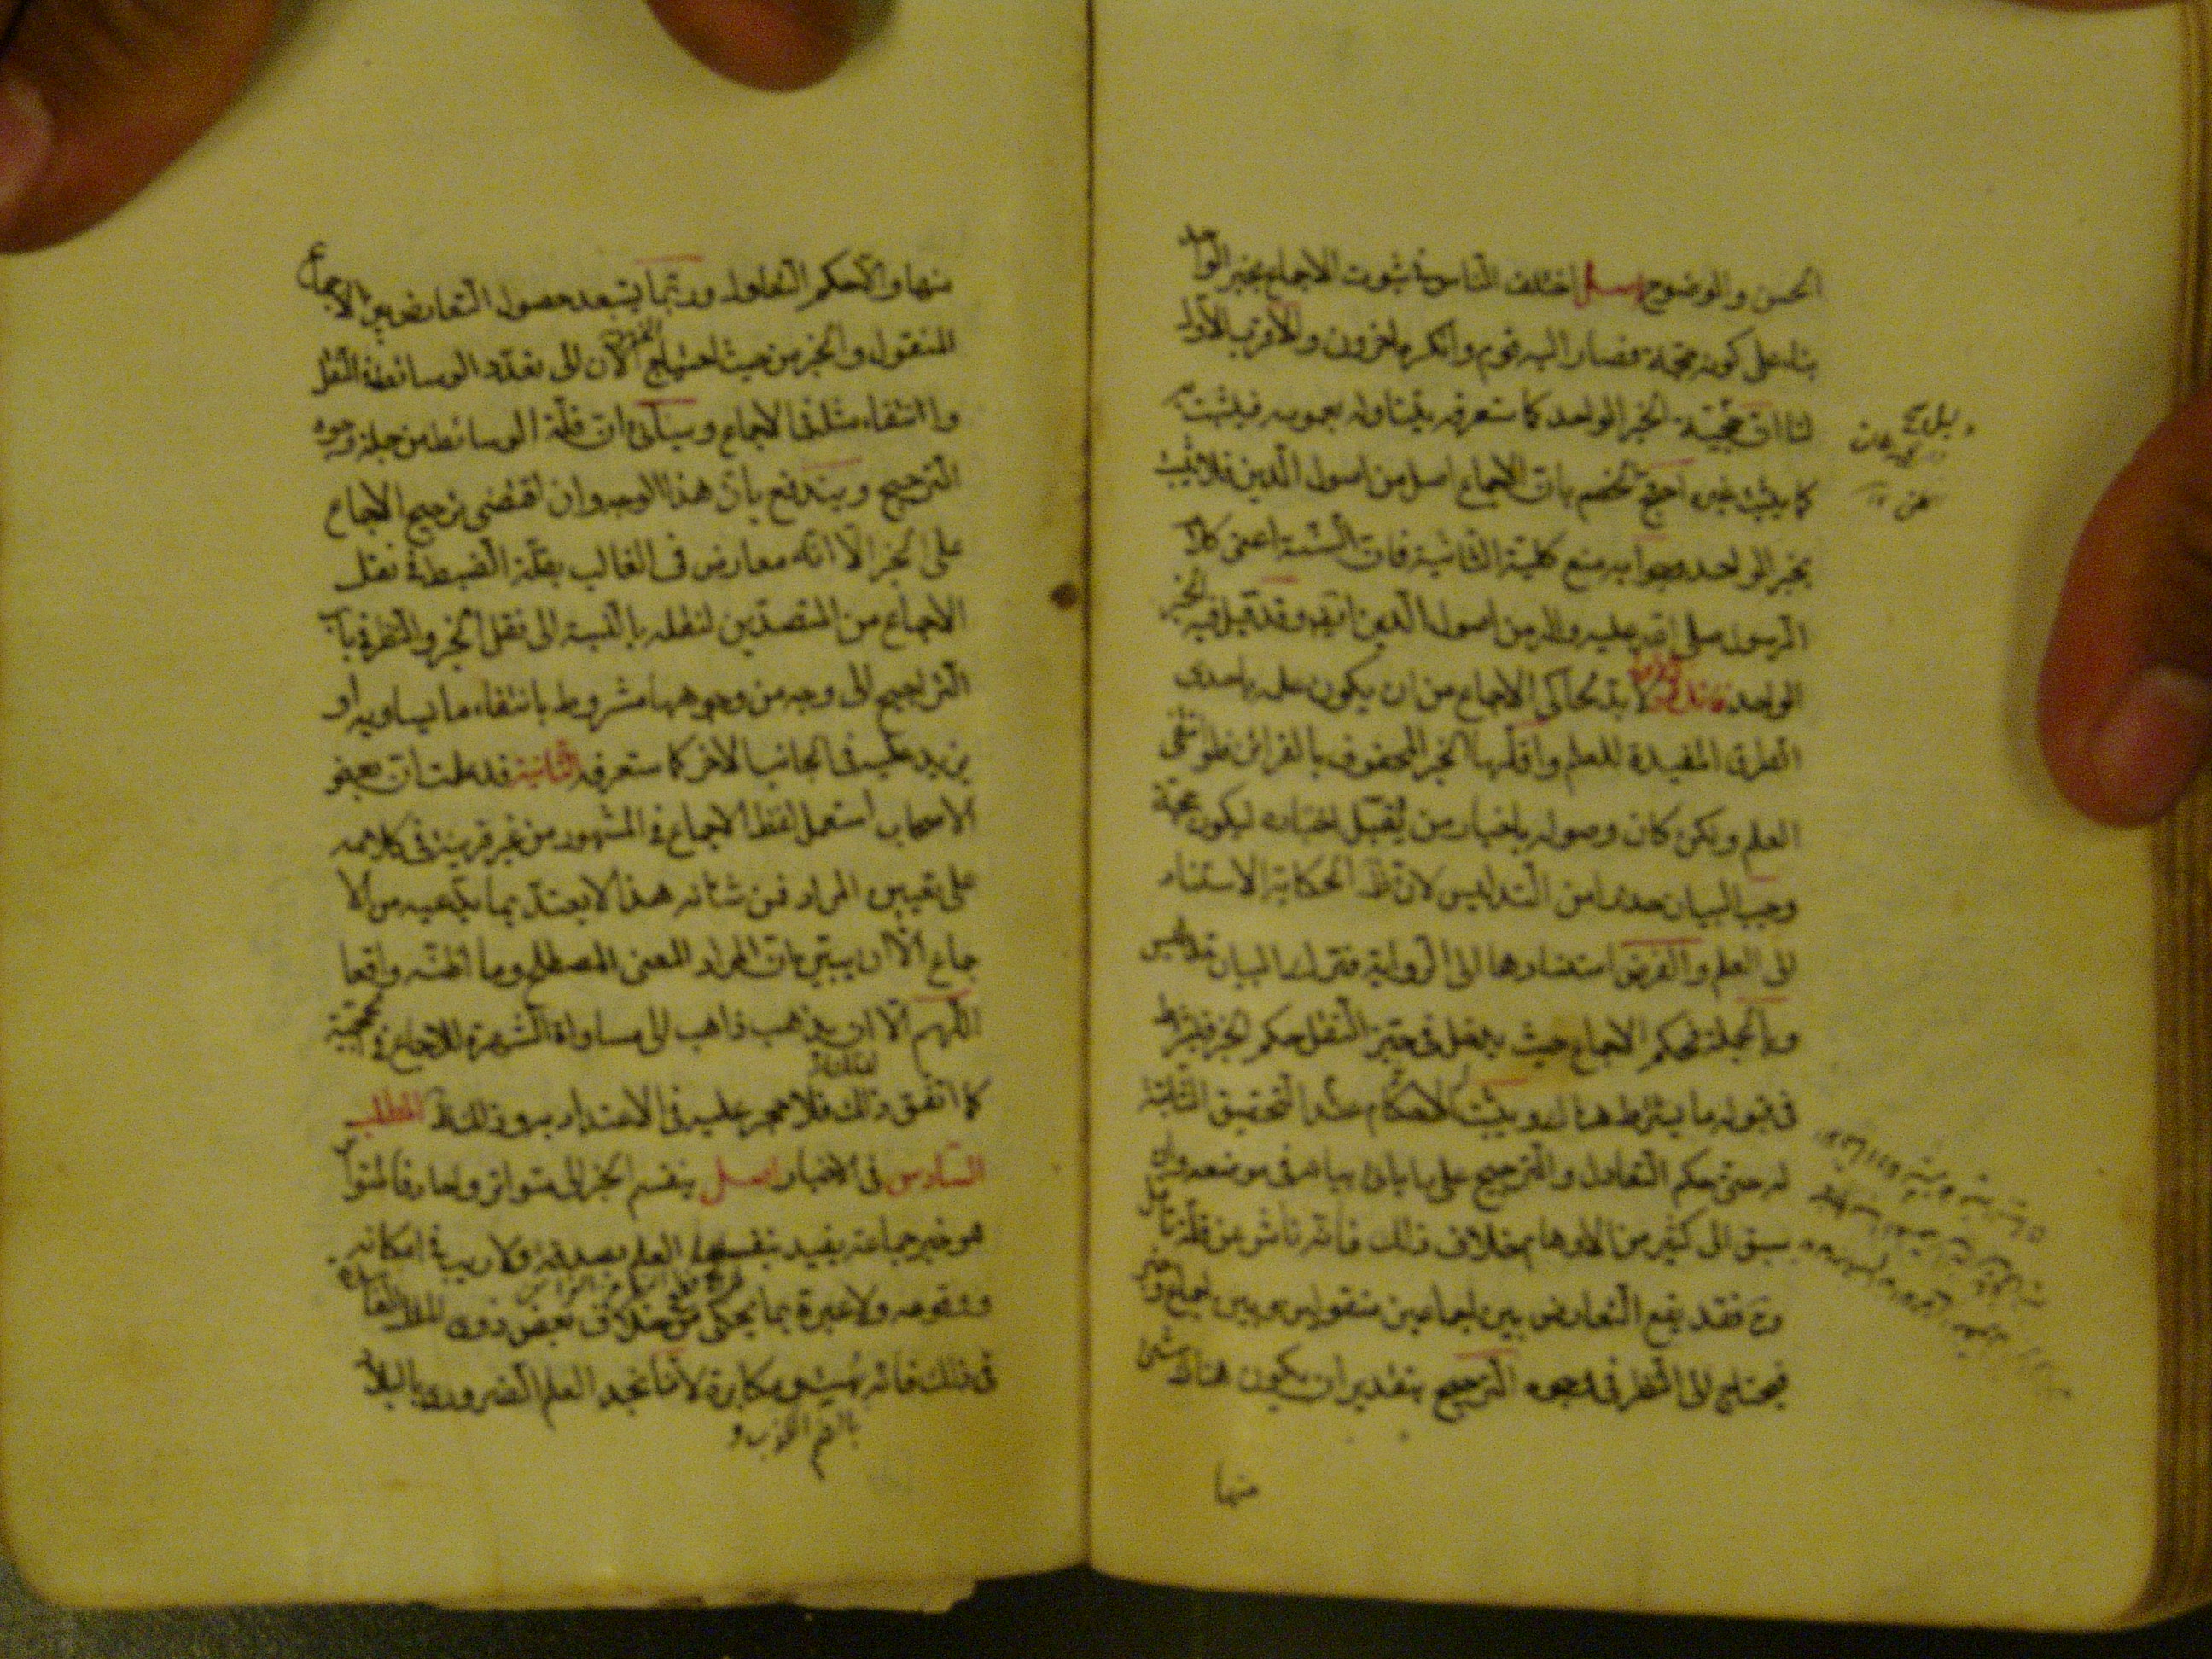 الحسن والوضوح اصل اختلف الناس في ثبوت الاجماع بخبر الواحد
بناء على كونه حجة فصار اليه قوم وانكره اخرون والاقرب الاول
لنا ان حجية الخبر الواحد كما ستعرفه يتناوله بعمومه فيثبت به
كما يثبت غيره احتج الخصم بان الاجماع اصل من اصول الدين فلا يثبت
بخبر الواحد وجوابه منع كلية الثانية فان السنة اعنى كلام
الرسول صلى الله عليه واله من اصول الدين ايضا وقد قبل فيه الخبر
الواحد فائدتان لابد لحاكى الاجماع من ان يكون علمه باحدى
الطرق المفيدة للعلم واقلها الخبر المحفوف بالقرائن فلو انتفى
العلم ولكن كان وصوله باخبار من يقبل اخباره ليكون حجة
وجب البيان حذرا من التدليس لان ظ الحكاية الاستناد
الى العلم والفرض استنادها الى الرواية فترك البيان تدليس
وبالجملة فحكم الاجماع حيث يدخل فى حيز النقل حكم الخبر فيشترط
فى قبوله ما يشترط هناك ويثبت الاحكام عند التحقيق الثابتة
له حتى حكم التعادل والترجيح على ما ياتى بيانه فى موضعه وان
سبق الى كثير من الاوهام خلاف ذلك فانه ناش عن قلة تامل
وح فقد يقع التعارض بين اجماعين منقولين وبين اجماع وخبر
فيحتاج الى النظر فى وجوه الترجيح بتقدير ان يكون هناك شئ
منها
منها والا حكم التعادل وربما يستبعد حصول التعارض بين الاجماع
المنقول والخبر من حيث احتياج الخبر الان الى تعدد الوسائط فى النقل
وانتفاء مثله فى الاجماع وسياتى ان قلة الوسائط من جملة وجوه
الترجيح ويندفع بان هذا الوجه وان اقتضى ترجيح الاجماع
على الخبر الا انه معارض فى الغالب بقلة الضبط فى نقل
الاجماع من المتصدين لنقله بالنسبة الى نقل الخبر والنظر فى باب
التراجيح الى وجه من وجوهها مشروط بانتفاء ما يساويه او
يزيد عليه فى الجانب الاخر كما ستعرفه الثانية قد علمت ان بعض
الاصحاب استعمل لفظ الاجماع فى المشهور من غير قرينة فى كلامه
على تعيين المراد فمن شانه هذا لا يعتد بما يدعيه من الا
جماع الا ان يبين بان المراد المعنى المصطلح وما اظنه واقعا
اللهم الا ان يذهب ذاهب الى مساواة الشهرة للاجماع فى الحجية
كما اتفق ذلك فلا حجر عليه فى الاعتداد به وذلك ظ المطلب
السادس فى الاخبار اصل ينقسم الخبر الى متواتر واحاد فالمتواتر
هو خبر جماعة يفيد بنفسه العلم بصدقه ولا ريب فى امكانه
ووقوعه ولا عبرة بما يحكى من خلاف بعض ذوى الملل الفاسدة
فى ذلك فانه بهت ومكابرة لانا نجد العلم الضرورى بالبلاد